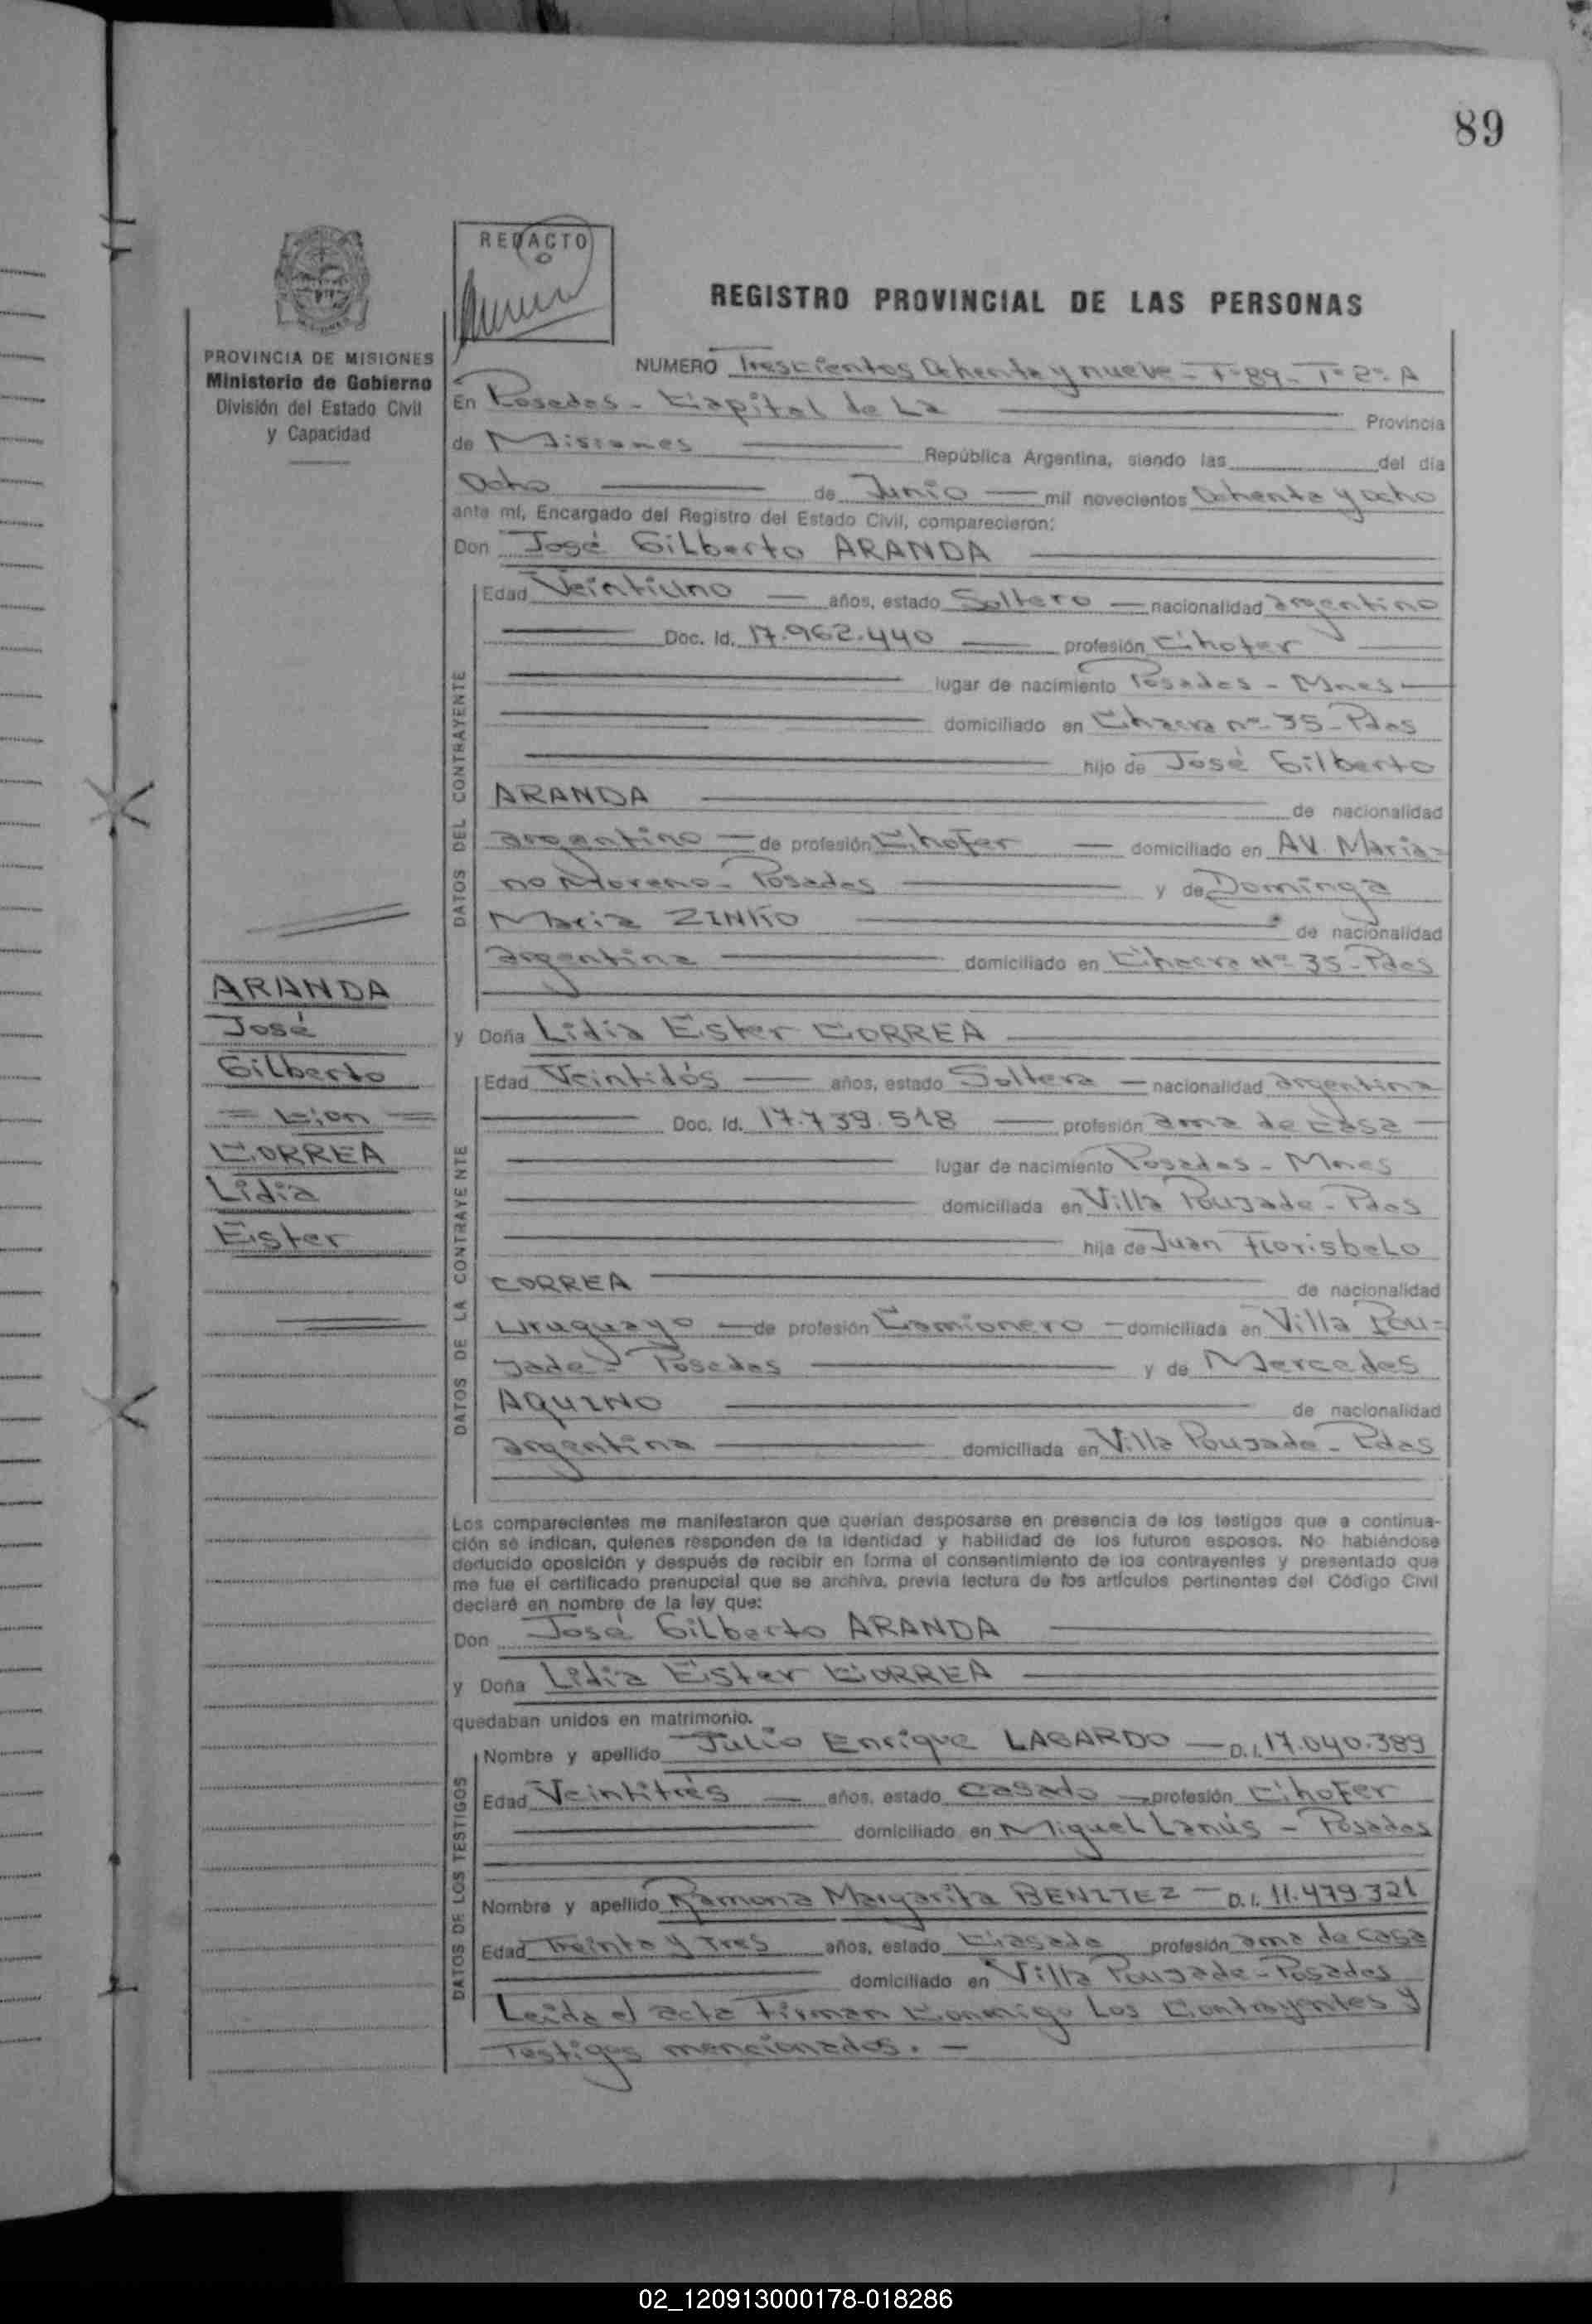 89
REDACTO
REGISTRO PROVINCIAL DE LAS PERSONAS
PROVINCIA DE MISIONES
Ministerio de Gobierno
División del Estado Civil
y Capacidad
NUMERO Trescientos Ochenta y nueve - Fº 89 - Tº 2º A
En Posadas - Capital de La Provincia
de Misiones República Argentina, siendo las del día
Ocho de Junio mil novecientos Ochenta y ocho
ante mí, Encargado del Registro del Estado Civil, comparecieron:
Don José Gilberto ARANDA
DATOS DEL CONTRAYENTE
Edad Veintiuno años, estado Soltero nacionalidad argentino
Doc. Id. 17.962.440 profesión Chofer
lugar de nacimiento Posadas - Mnes
domiciliado en Chacra nº 35 - Pdas
hijo de José Gilberto
ARANDA de nacionalidad
argentino de profesión Chofer domiciliado en AV. Maria=
no Moreno - Posadas y de Dominga
Maria ZINKO de nacionalidad
argentina domiciliado en Chacra Nº 35 - Pdas
ARANDA
José
Gilberto
= Con =
CORREA
Lidia
Ester
y Doña Lidia Ester CORREA
DATOS DE LA CONTRAYENTE
Edad Veintidós años, estado Soltera nacionalidad argentina
Doc. Id. 17.739.518 profesión ama de casa
lugar de nacimiento Posadas - Mnes
domiciliada en Villa Poujade - Pdas
hija de Juan Florisbelo
CORREA de nacionalidad
Uruguayo de profesión Camionero domiciliada en Villa Pou=
jade - Posadas y de Mercedes
AQUINO de nacionalidad
argentina domiciliada en Villa Poujade - Pdas
Los comparecientes me manifestaron que querían desposarse en presencia de los testigos que a continua-
ción se indican, quienes responden de la identidad y habilidad de los futuros esposos. No habiéndose
deducido oposición y después de recibir en forma el consentimiento de los contrayentes y presentado que
me fue el certificado prenupcial que se archiva, previa lectura de los artículos pertinentes del Código Civil
declaré en nombre de la ley que:
Don José Gilberto ARANDA
y Doña Lidia Ester CORREA
quedaban unidos en matrimonio.
DATOS DE LOS TESTIGOS
Nombre y apellido Julio Enrique LAGARDO - D.I. 17.040.389
Edad Veintitrés años, estado Casado profesión Chofer
domiciliado en Miguel Lanús - Posadas
Nombre y apellido Ramona Margarita BENITEZ - D.I. 11.479.321
Edad Treinta y Tres años, estado Casada profesión ama de casa
domiciliado en Villa Poujade - Posadas
Leida el acta Firman Conmigo Los Contrayentes y
Testigos mencionados. -
02_120913000178-018286